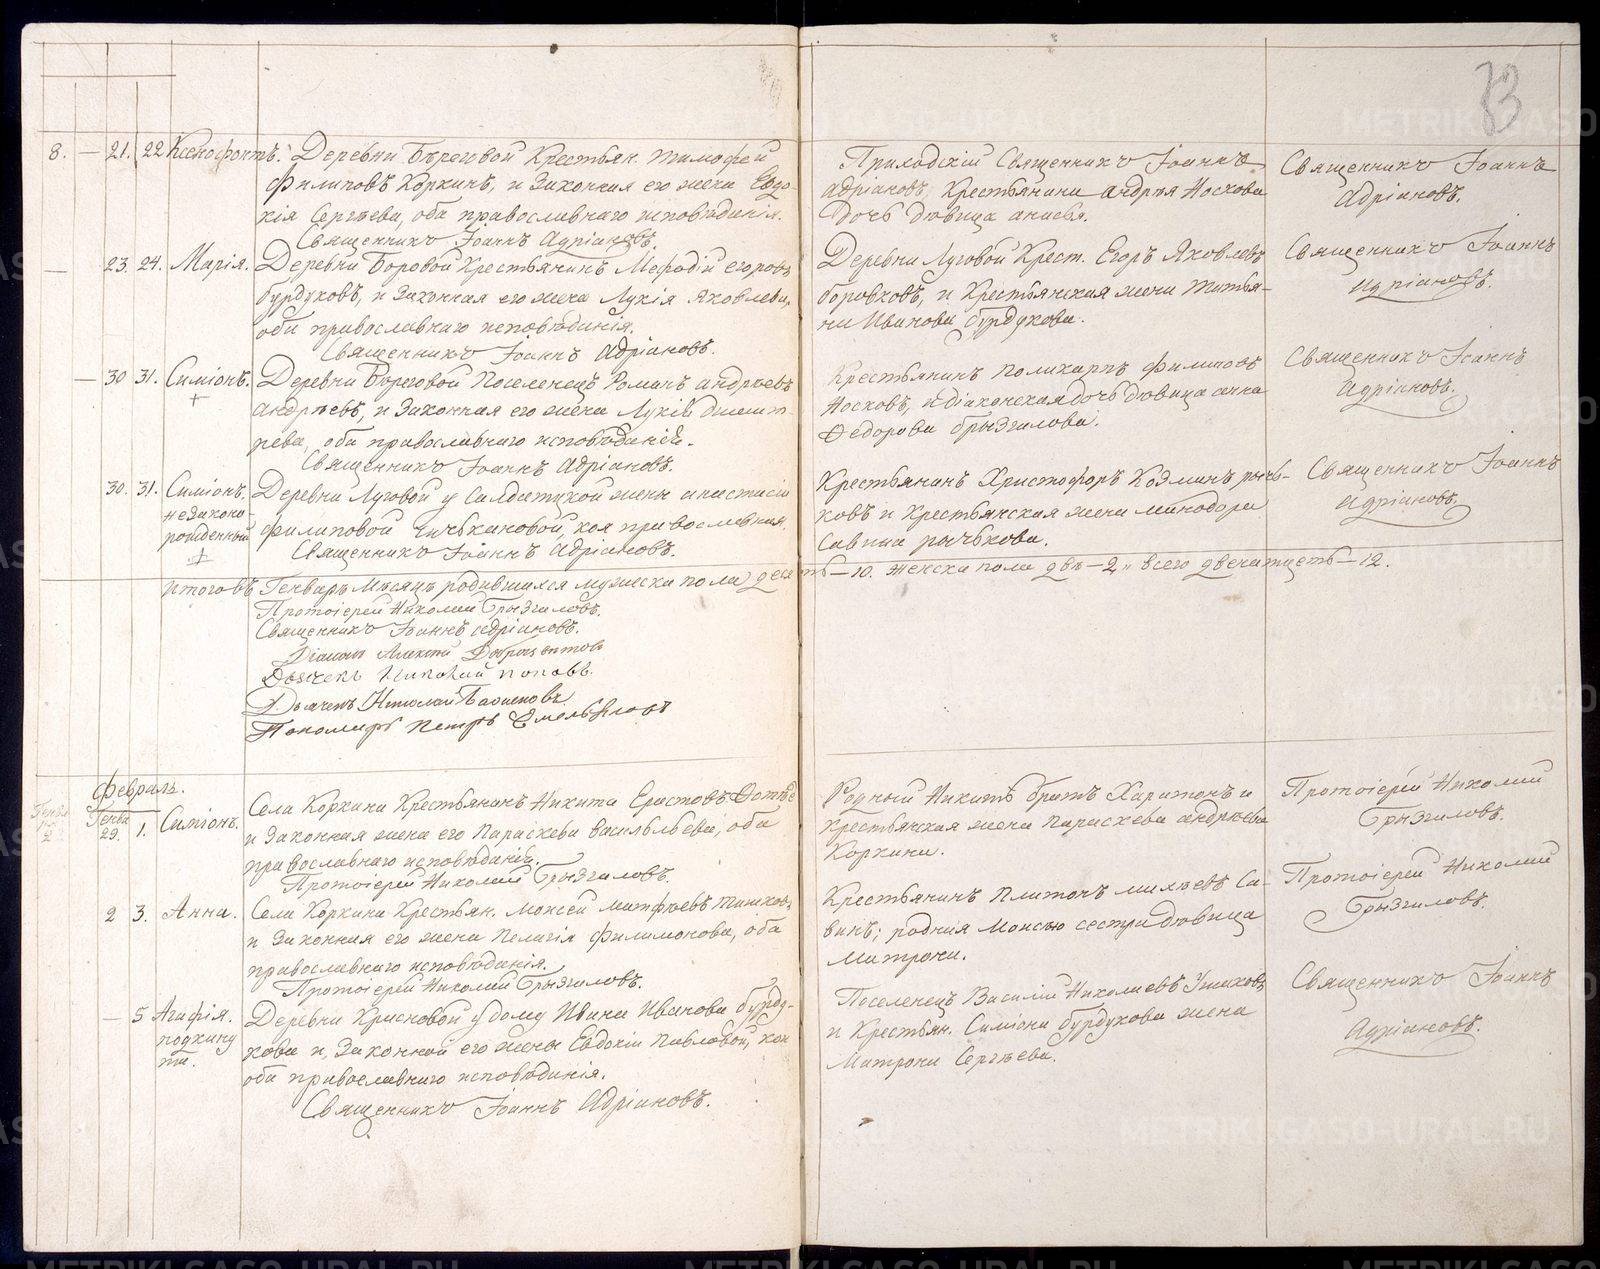 8. — 21. 22 Ксенофонтъ. Деревни Береговой Крестьян. Тимофей
Филиповъ Коркинъ, и Законная его жена Евдо-
кія Сергѣева, оба православнаго исповѣданія.
Священникъ Іоаннъ Адріановъ.
Приходскій Священникъ Іоаннъ
Адріановъ, Крестьянина Андрея Носкова
дочь дѣвица
Священникъ Іоаннъ
Адріановъ.
— 23. 24. Марія. Деревни Боровой Крестьянинъ Мефодій Егоровъ
Бурдуковъ, и Законная его жена Лукія Яковлева,
оба православнаго исповѣданія.
Священникъ Іоаннъ Адріановъ.
Деревни Луговой Крест. Егоръ Яковлевъ
Боровковъ, и Крестьянская жена Татья-
на Иванова Бурдукова.
Священникъ Іоаннъ
Адріановъ.
— 30 31. Симіонъ. Деревни Береговой Поселенецъ Романъ Андреевъ
+
Андреевъ, и Законная его жена Лукія
оба православнаго исповѣданія.
Священникъ Іоаннъ Адріановъ.
Крестьянинъ Поликарпъ Филиповъ
Носковъ, и діаконская дочь дѣвица Анна
Федорова Брызгалова.
Священникъ Іоаннъ
Адріановъ.
30. 31. Симіонъ. Деревни Луговой у Салдатской жены Анастасіи
незаконо-
рожденный
+
Филиповой коя православная.
Священникъ Іоаннъ Адріановъ.
Крестьянинъ Христофоръ Козминъ Рычь-
ковъ и Крестьянская жена Минодора
Савина Рычькова.
Священникъ Іоаннъ
Адріановъ.
итого въ Генварь Мѣсяцъ родившихся мужеска пола десять — 10. женска пола двѣ — 2, всего двенатцеть — 12.
Протоіерей Николай Брызгаловъ.
Священникъ Іоаннъ Адріановъ.
Діаконъ Алексей
Дьячекъ Николай Поповъ.
Дьячекъ Николай
Пономарь Петръ Емельяновъ
Февраль.
Генва
29. 1. Симіонъ. Села Коркина Крестьянинъ Никита Еристовъ
и Законная жена его Параскева Васильева, оба
православнаго исповѣданія.
Протоіерей Николай Брызгаловъ.
Родный Никитѣ братъ Харитонъ и
Крестьянская жена Параскева Андрѣева
Коркины.
Протоіерей Николай
Брызгаловъ.
2 3. Анна. Села Коркина Крестьян. Моисей Матфѣевъ
и Законная его жена Пелагія Филимонова, оба
православнаго исповѣданія.
Протоіерей Николай Брызгаловъ.
Крестьянинъ Платонъ Са-
винъ; родная Моисею сестра дѣвица
Матрона.
Протоіерей Николай
Брызгаловъ.
— 5 Агафія. Деревни Красновой у дому Ивана Иванова Бурду-
подкину
та.
кова и Законной его жены Евдокіи Павловой, кои
оба православнаго исповѣданія.
Священникъ Іоаннъ Адріановъ.
Поселенецъ Василій Николаевъ Ушаковъ,
и Крестьян. Симіона Бурдукова жена
Матрона Сергѣева.
Священникъ Іоаннъ
Адріановъ.
METRIKI.GASO-URAL.RU